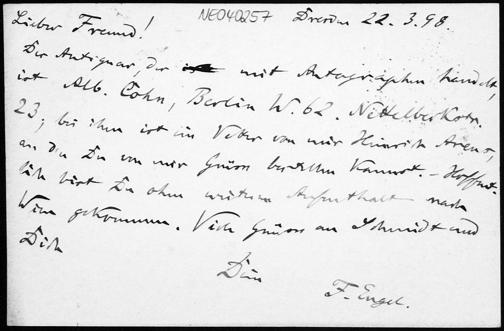 NE040257
Dresden 22.3.98.
Lieber Freund!
Der Antiquar, der mit Autographen handelt,
ist Alb. Cohn, Berlin W. 62. Nettelbeckstr.
23; bei ihm ist ein Vetter von mir Heinrich
an den Du von mir Grüsse bestellen kannst. – Hoffent-
lich bist Du ohne weiteren Aufenthalt nach
Wien gekommen. Viele Grüsse an Schmidt und
Dich
Dein
F. Engel.